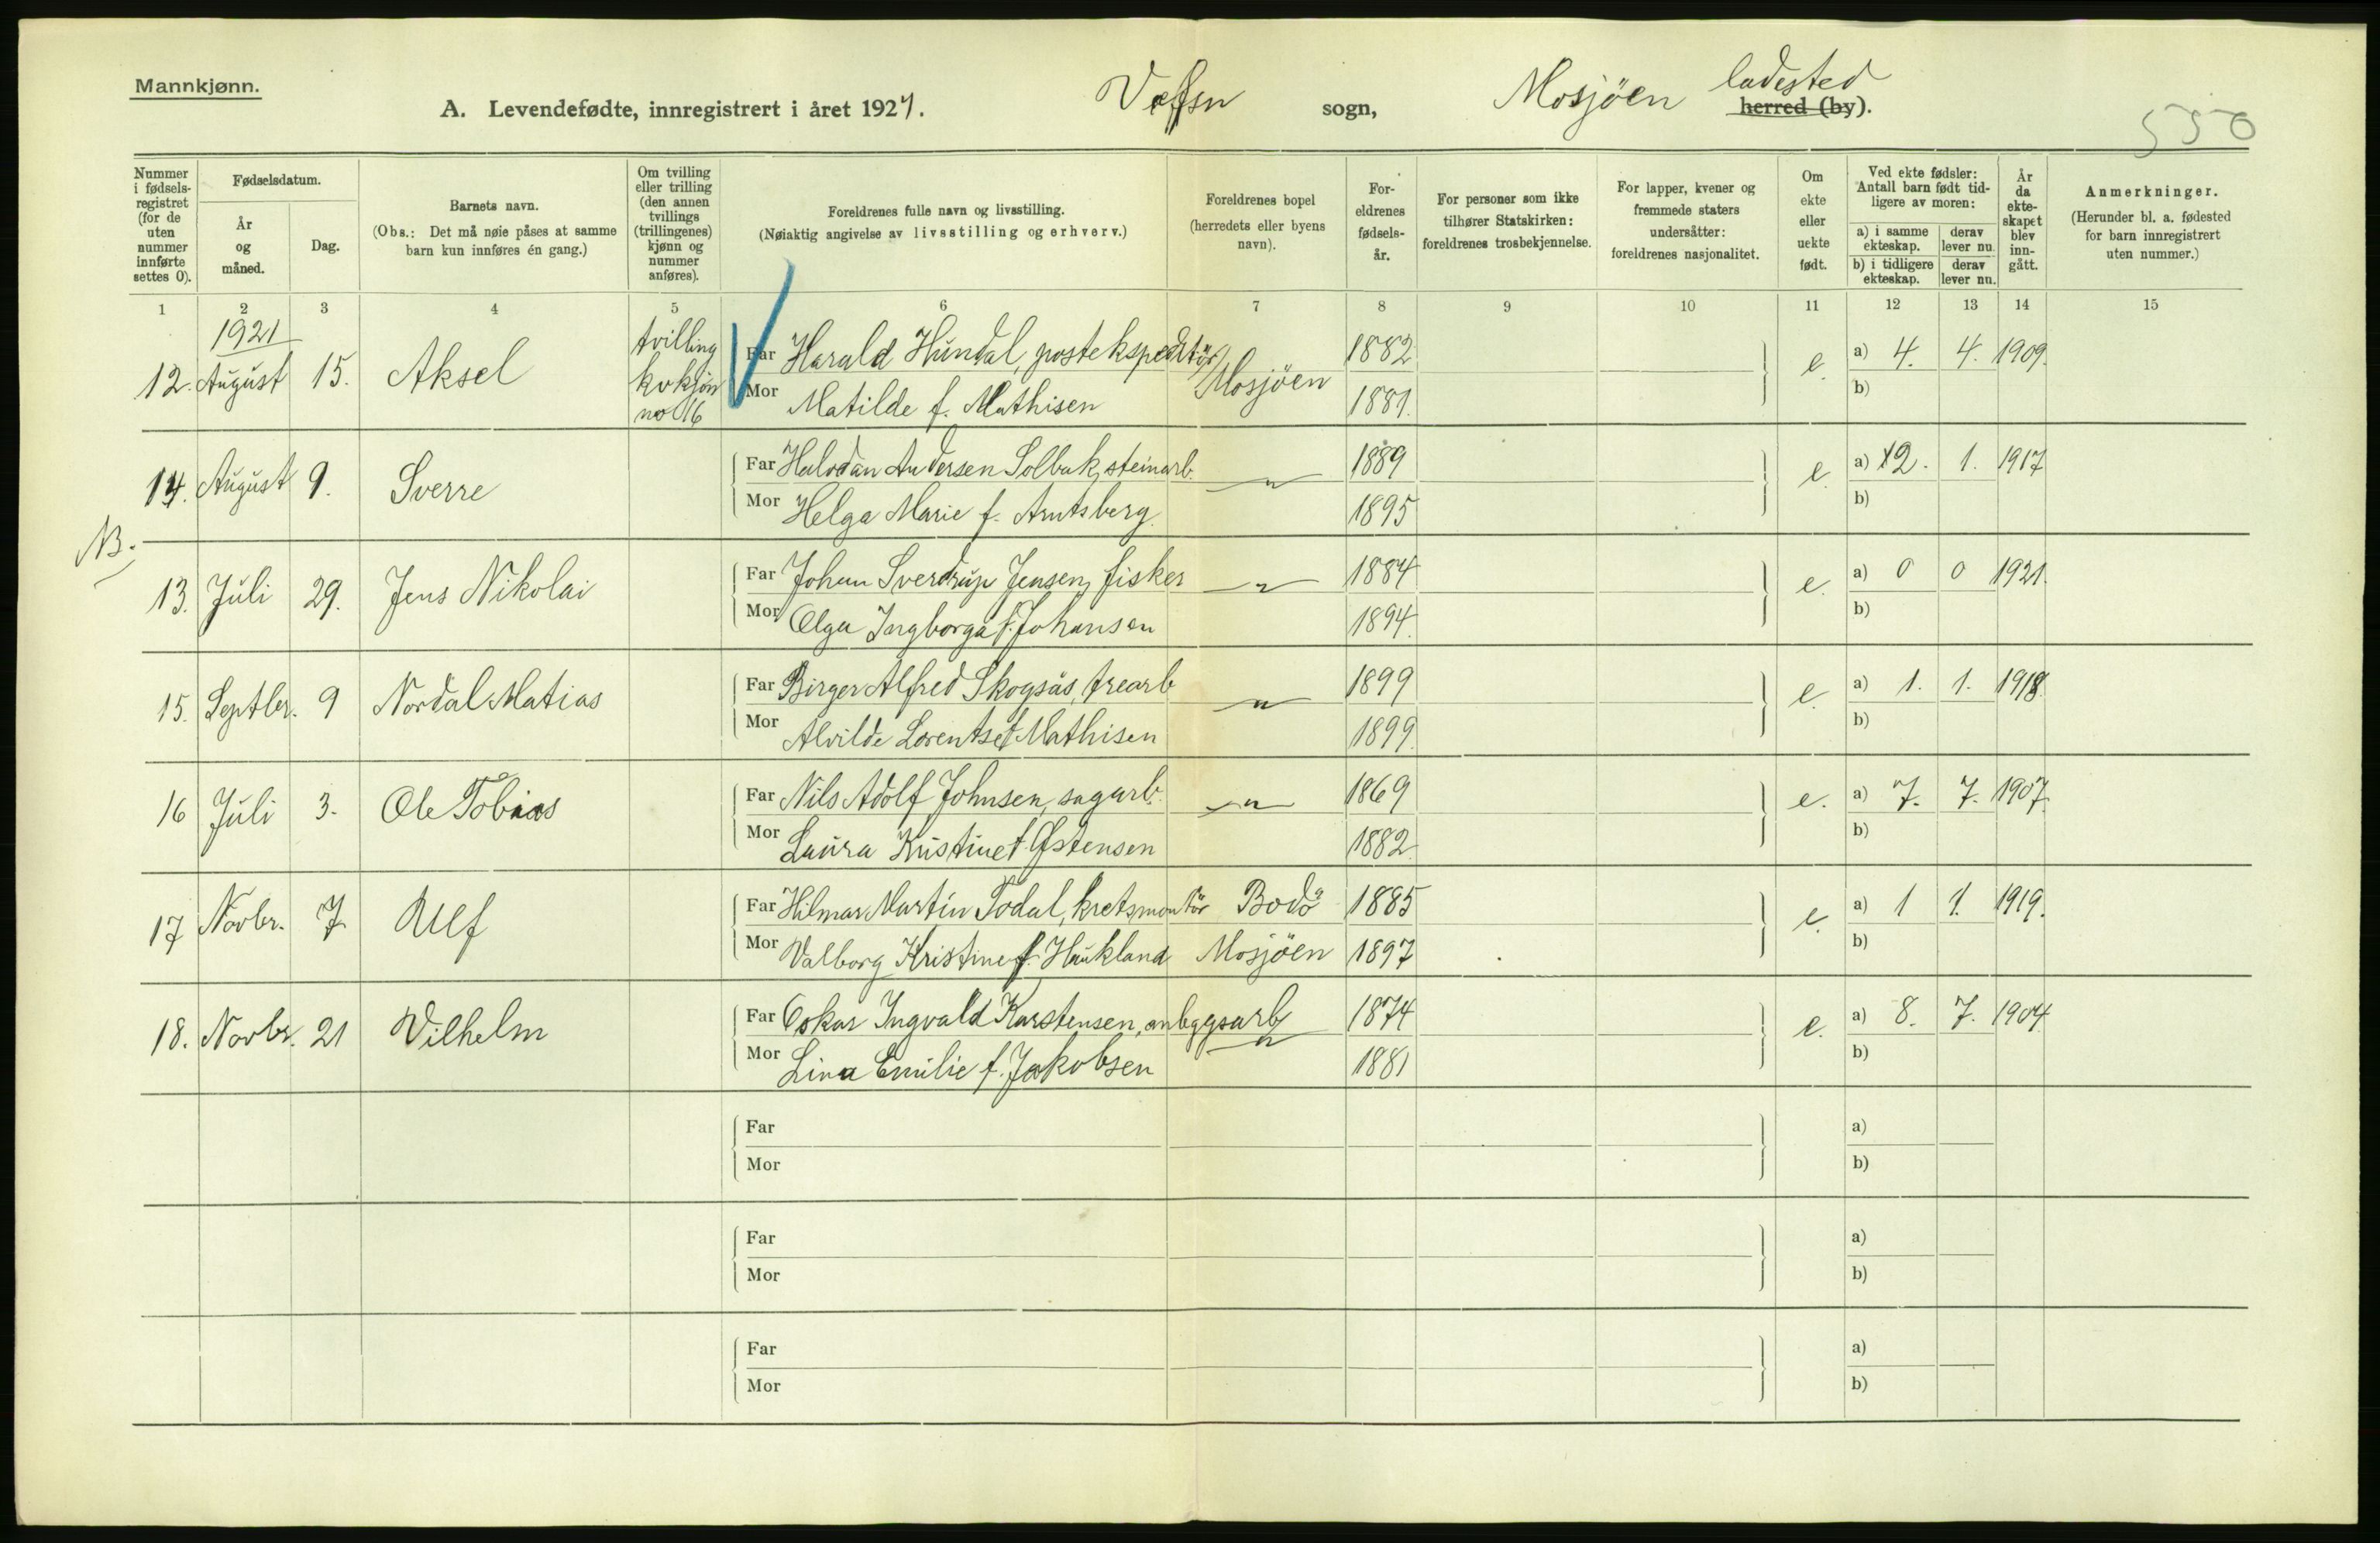 Mannkjønn.
A. Levendefødte, innregistrert i året 1921. Vefsn sogn, Mosjöen ladested herred (by).
550
Nummer i fødselsregistret (for de uten nummer innførte settes 0).
Fødselsdatum.
År og måned.
Dag.
Barnets navn.
(Obs.: Det må nøie påses at samme barn kun innføres én gang.)
Om tvilling eller trilling (den annen tvillings (trillingenes) kjønn og nummer anføres).
Foreldrenes fulle navn og livsstilling.
(Nøiaktig angivelse av livsstilling og erhverv.)
Foreldrenes bopel (herredets eller byens navn).
Foreldrenes fødselsår.
For personer som ikke tilhører Statskirken: foreldrenes trosbekjennelse.
For lapper, kvener og fremmede staters undersåtter: foreldrenes nasjonalitet.
Om ekte eller uekte født.
Ved ekte fødsler: Antall barn født tidligere av moren:
a) i samme ekteskap. derav lever nu.
b) i tidligere ekteskap. derav lever nu.
År da ekteskapet blev inngått.
Anmerkninger.
(Herunder bl. a. fødested for barn innregistrert uten nummer.)
1 2 3 4 5 6 7 8 9 10 11 12 13 14 15
1921
12. August 15. Aksel tvilling kvkjön no 16 Far Harald Hundal, postekspeditör Mosjöen 1882 e. a) 4. 4. 1909.
Mor Matilde f. Mathisen 1881. b)
14. August 9. Sverre Far Halvdan Andersen Solbak, steinarb. — " — 1889 e. a) 2. 1. 1917
Mor Helga Marie f. Arntsberg. 1895 b)
NB.
13. Juli 29. Jens Nikolai Far Johan Sverdrup Jensen, fisker — " — 1884 e. a) 0 0 1921.
Mor Olga Ingborga f. Johansen 1894. b)
15. Septbr. 9 Nordal Matias Far Birger Alfred Skogsås, trearb — " — 1899 e. a) 1. 1. 1918.
Mor Alvilde Lorentse f Mathisen 1899. b)
16 Juli 3. Ole Tobias Far Nils Adolf Johnsen, sagarb. — " — 1869 e. a) 7. 7. 1907.
Mor Laura Kristine f. Østensen 1882. b)
17 Novbr. 7 Ulf Far Hilmar Martin Todal, kretsmontör Bodö 1885 e. a) 1 1. 1919.
Mor Valborg Kristine f. Haukland Mosjöen 1897 b)
18. Novbr. 21 Vilhelm Far Oskar Ingvald Karstensen, anleggsarb — " — 1874 e. a) 8. 7. 1904
Mor Lina Emilie f. Jakobsen 1881 b)
Far a)
Mor b)
Far a)
Mor b)
Far a)
Mor b)